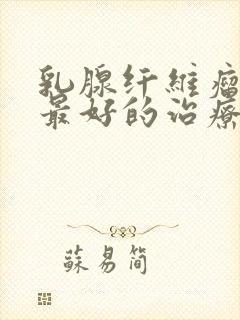 乳腺纤維瘤
最好的治療
蘇易简